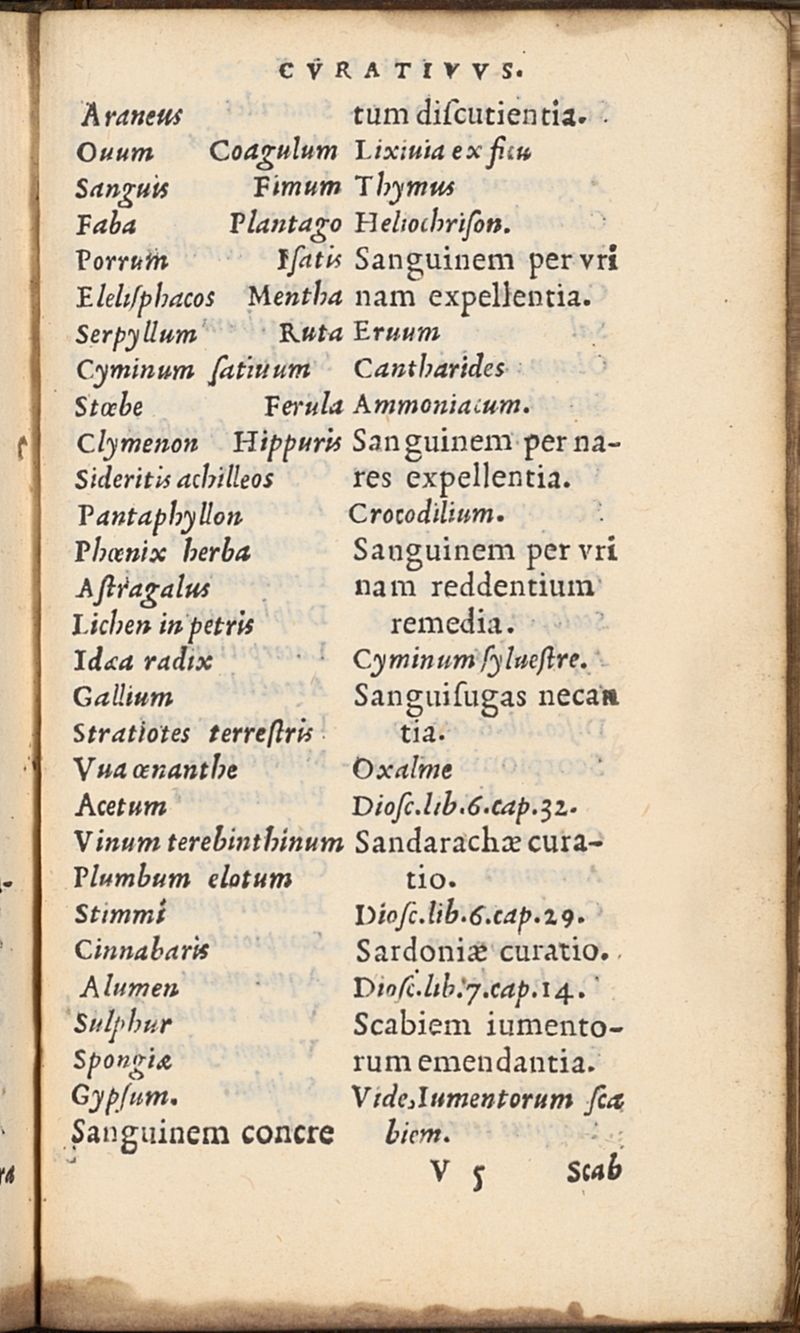 CVRATIVVS.
Araneus
Ouum Coagulum
Sanguis Fimum
Faba Plantago
Porrum Iſatis
Eleliſphacos Mentha
Serpyllum Ruta
Cyminum ſatiuum
Stœbe Ferula
Clymenon Hippuris
Sideritis achilleos
Pantaphyllon
Phœnix herba
Aſtragalus
Lichen in petris
Idæa radix
Gallium
Stratiotes terreſtris
Vua œnanthe
Acetum
Vinum terebinthinum
Plumbum elotum
Stimmi
Cinnabaris
Alumen
Sulphur
Spongiæ
Gypſum.
Sanguinem concre
tum diſcutientia.
Lixiuia ex ficu
Thymus
Heliochriſon.
Sanguinem per vri
nam expellentia.
Eruum
Cantharides
Ammoniacum.
Sanguinem per na-
res expellentia.
Crocodilium.
Sanguinem per vri
nam reddentium
remedia.
Cyminum ſylueſtre.
Sanguiſugas necan
tia.
Oxalme
Dioſc.lib.6.cap.32.
Sandarachæ cura-
tio.
Dioſc.lib.6.cap.29.
Sardoniæ curatio.
Dioſc.lib.7.cap.14.
Scabiem iumento-
rum emendantia.
Vide, Iumentorum ſca
biem.
V 5 Scab